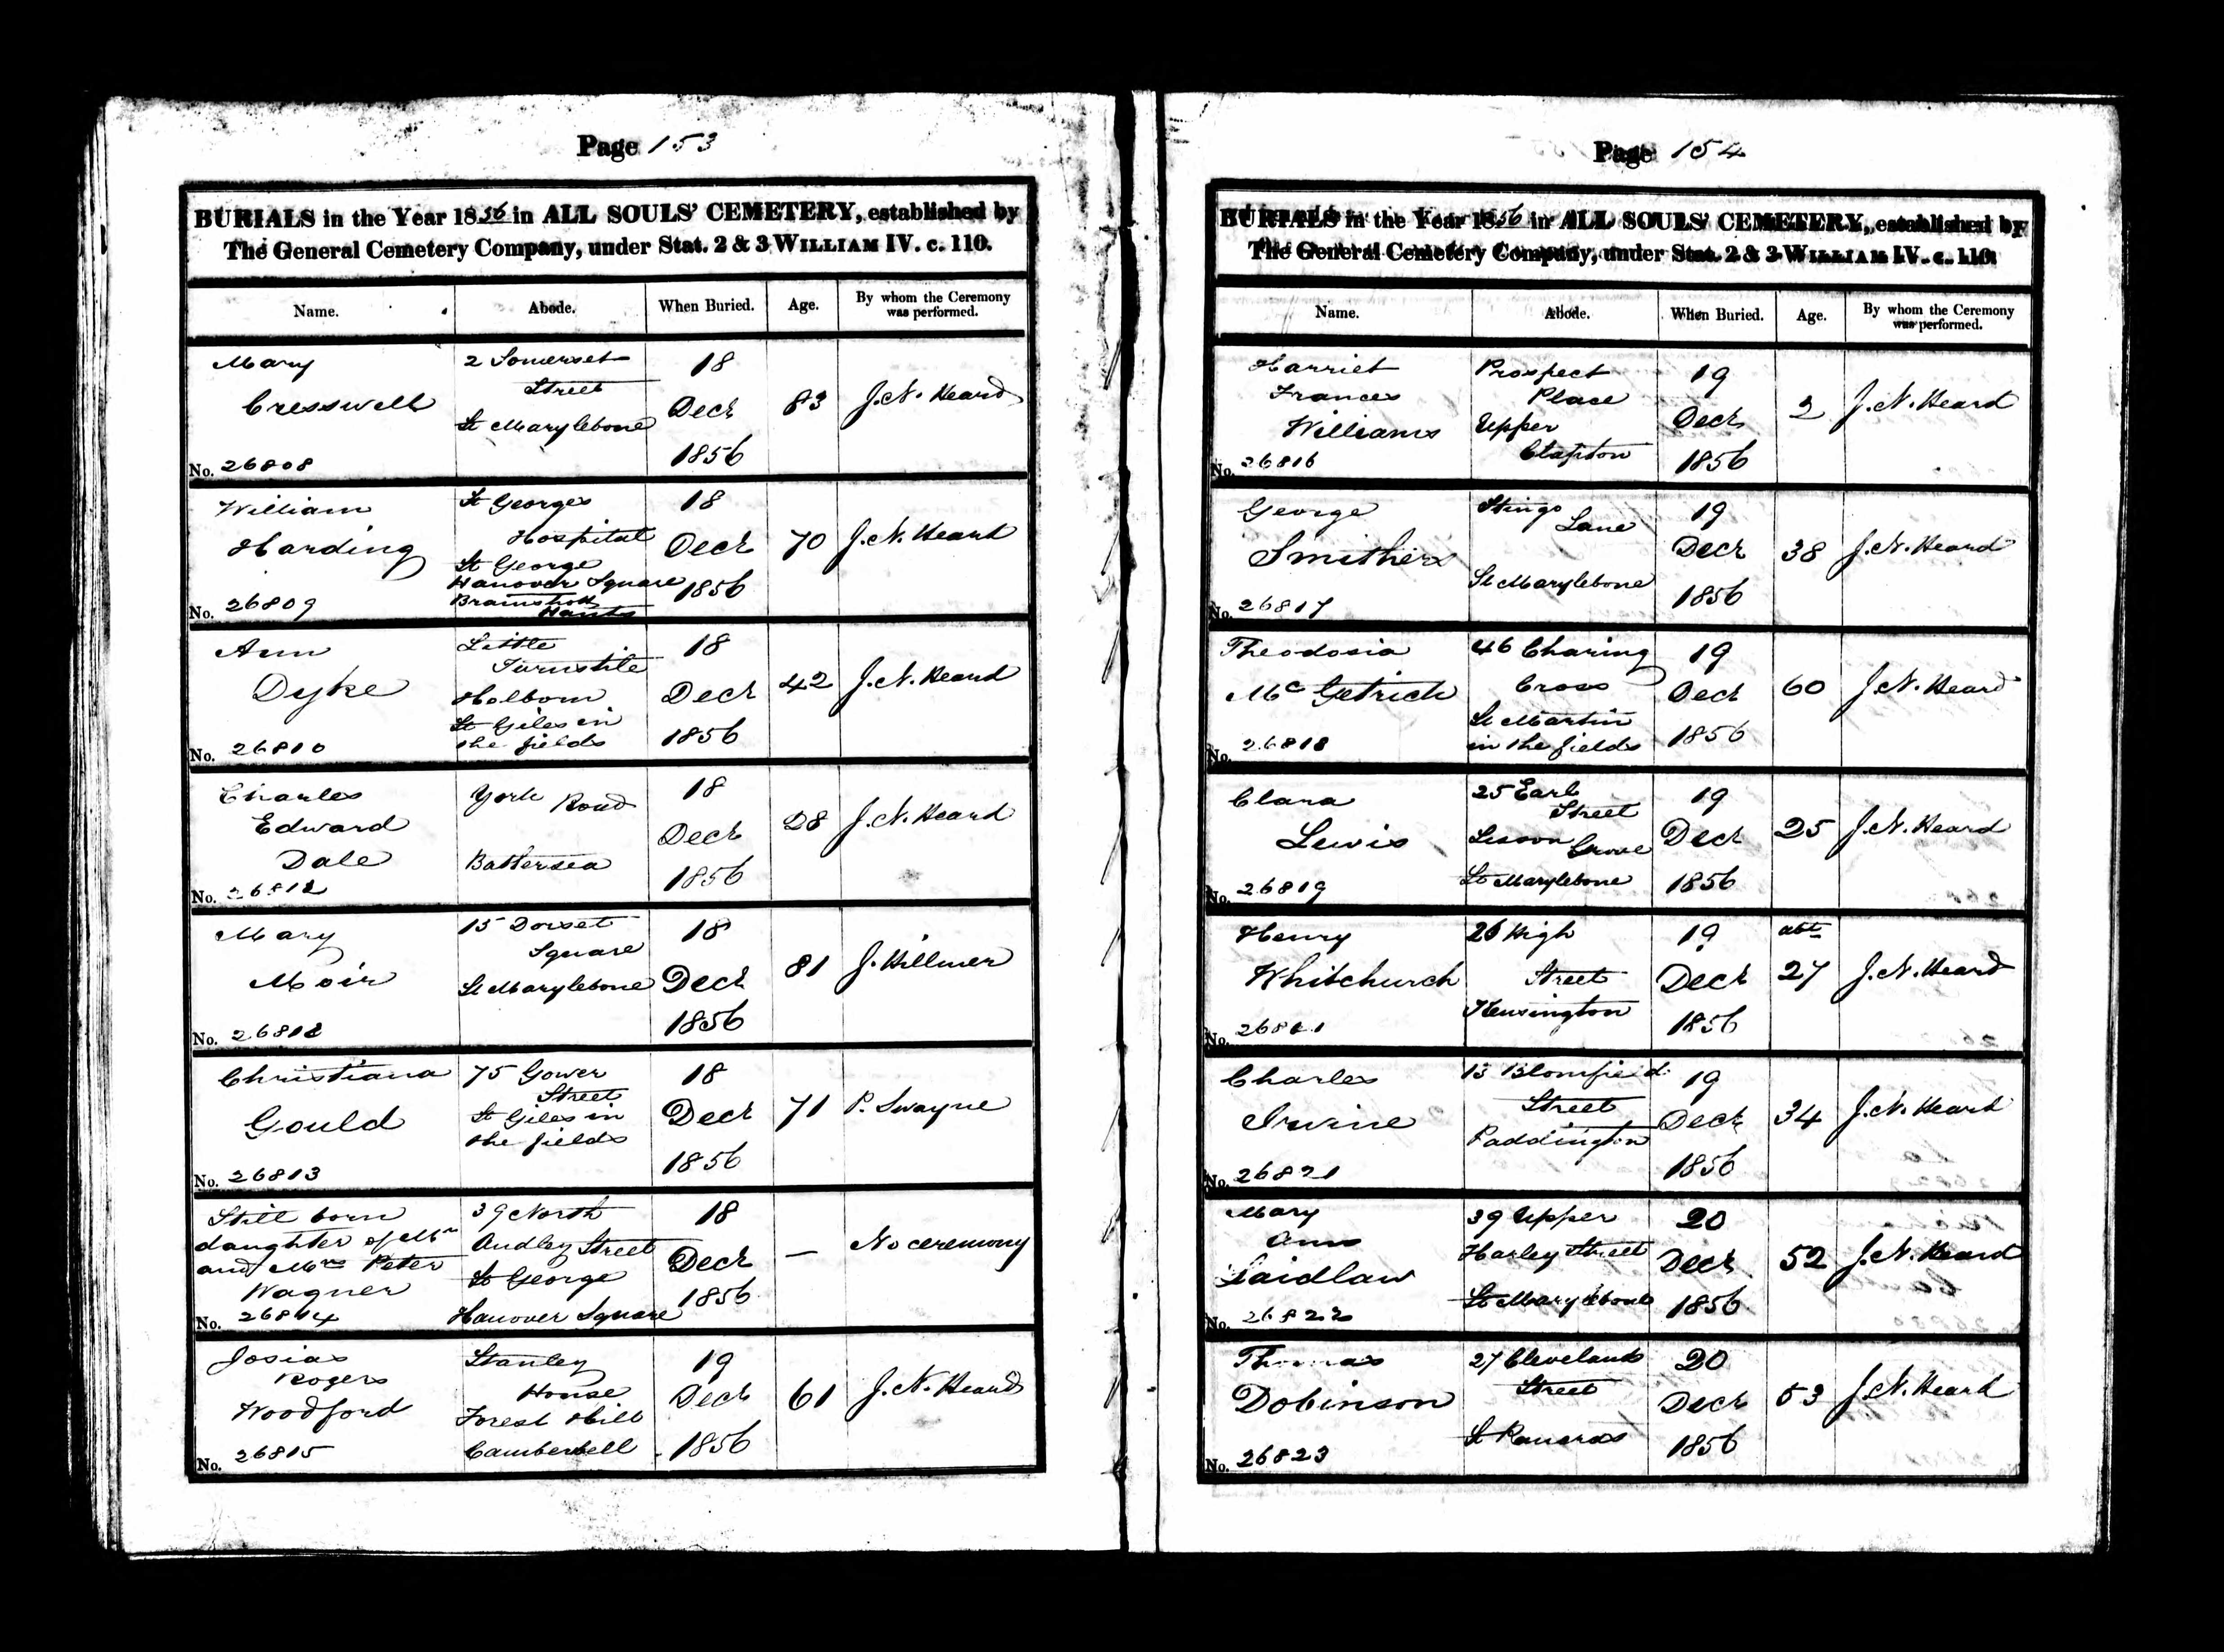 Page 153
BURIALS in the Year 1856 in ALL SOULS' CEMETERY, established by
The General Cemetery Company, under Stat. 2 & 3 WILLIAM IV. c. 110.
Name. Abode. When Buried. Age. By whom the Ceremony was performed.
Mary
Cresswell
No. 26808
2 Somerset
Street
St Marylebone
18
Decr
1856
83
J. N. Heard
William
Harding
No. 26809
St Georges
Hospital
St George
Hanover Square
Bramshott
Hants
18
Decr
1856
70
J. N. Heard
Ann
Dyke
No. 26810
Little
Turnstile
Holborn
St Giles in
the fields
18
Decr
1856
42
J. N. Heard
Charles
Edward
Dale
No.
York Road
Battersea
18
Decr
1856
28
J. N. Heard
Mary
Moir
No. 26812
15 Dorset
Square
St Marylebone
18
Decr
1856
81
J. Hillmer
Christiana
Gould
No. 26813
75 Gower
Street
St Giles in
the fields
18
Decr
1856
71
P. Swayne
Still born
daughter of Mr
and Mrs Peter
Wagner
No. 26814
39 North
Audley Street
St George
Hanover Square
18
Decr
1856
—
No ceremony
Josias
Rogers
Woodford
No. 26815
Stanley
House
Forest Hill
Camberwell
19
Decr
1856
61
J. N. Heard
Page 154
BURIALS in the Year 1856 in ALL SOULS' CEMETERY, established by
The General Cemetery Company, under Stat. 2 & 3 WILLIAM IV. c. 110.
Name. Abode. When Buried. Age. By whom the Ceremony was performed.
Harriet
Frances
Williams
No. 26816
Prospect
Place
Upper
Clapton
19
Decr
1856
2
J. N. Heard
George
Smithers
No. 26817
Stingo
Lane
St Marylebone
19
Decr
1856
38
J. N. Heard
Theodosia
Mc Getrich
No. 26818
46 Charing
Cross
St Martin
in the fields
19
Decr
1856
60
J. N. Heard
Clara
Lewis
No. 26819
25 Earl
Street
Lisson Grove
St Marylebone
19
Decr
1856
25
J. N. Heard
Henry
Whitchurch
No.
26 High
Street
Kensington
19
Decr
1856
abt
27
J. N. Heard
Charles
Irvine
No. 26821
13 Blomfield
Street
Paddington
19
Decr
1856
34
J. N. Heard
Mary
Ann
Laidlaw
No. 26822
39 Upper
Harley Street
St Marylebone
20
Decr
1856
52
J. N. Heard
Thomas
Dobinson
No. 26823
27 Cleveland
Street
St Pancras
20
Decr
1856
53
J. N. Heard